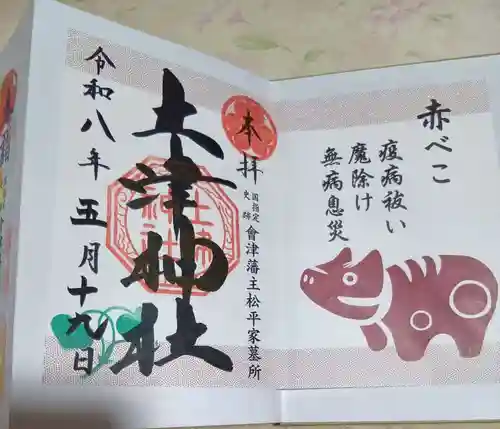 赤べこ
疫病祓い
魔除け
無病息災
本
拝
国指定
史跡
會津藩主松平家墓所
土津神社
令和八年五月十九日